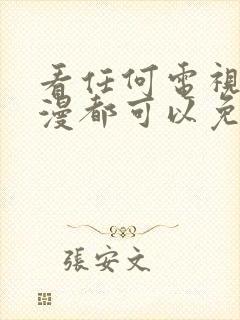 看任何電視
漫都可以免
張安文